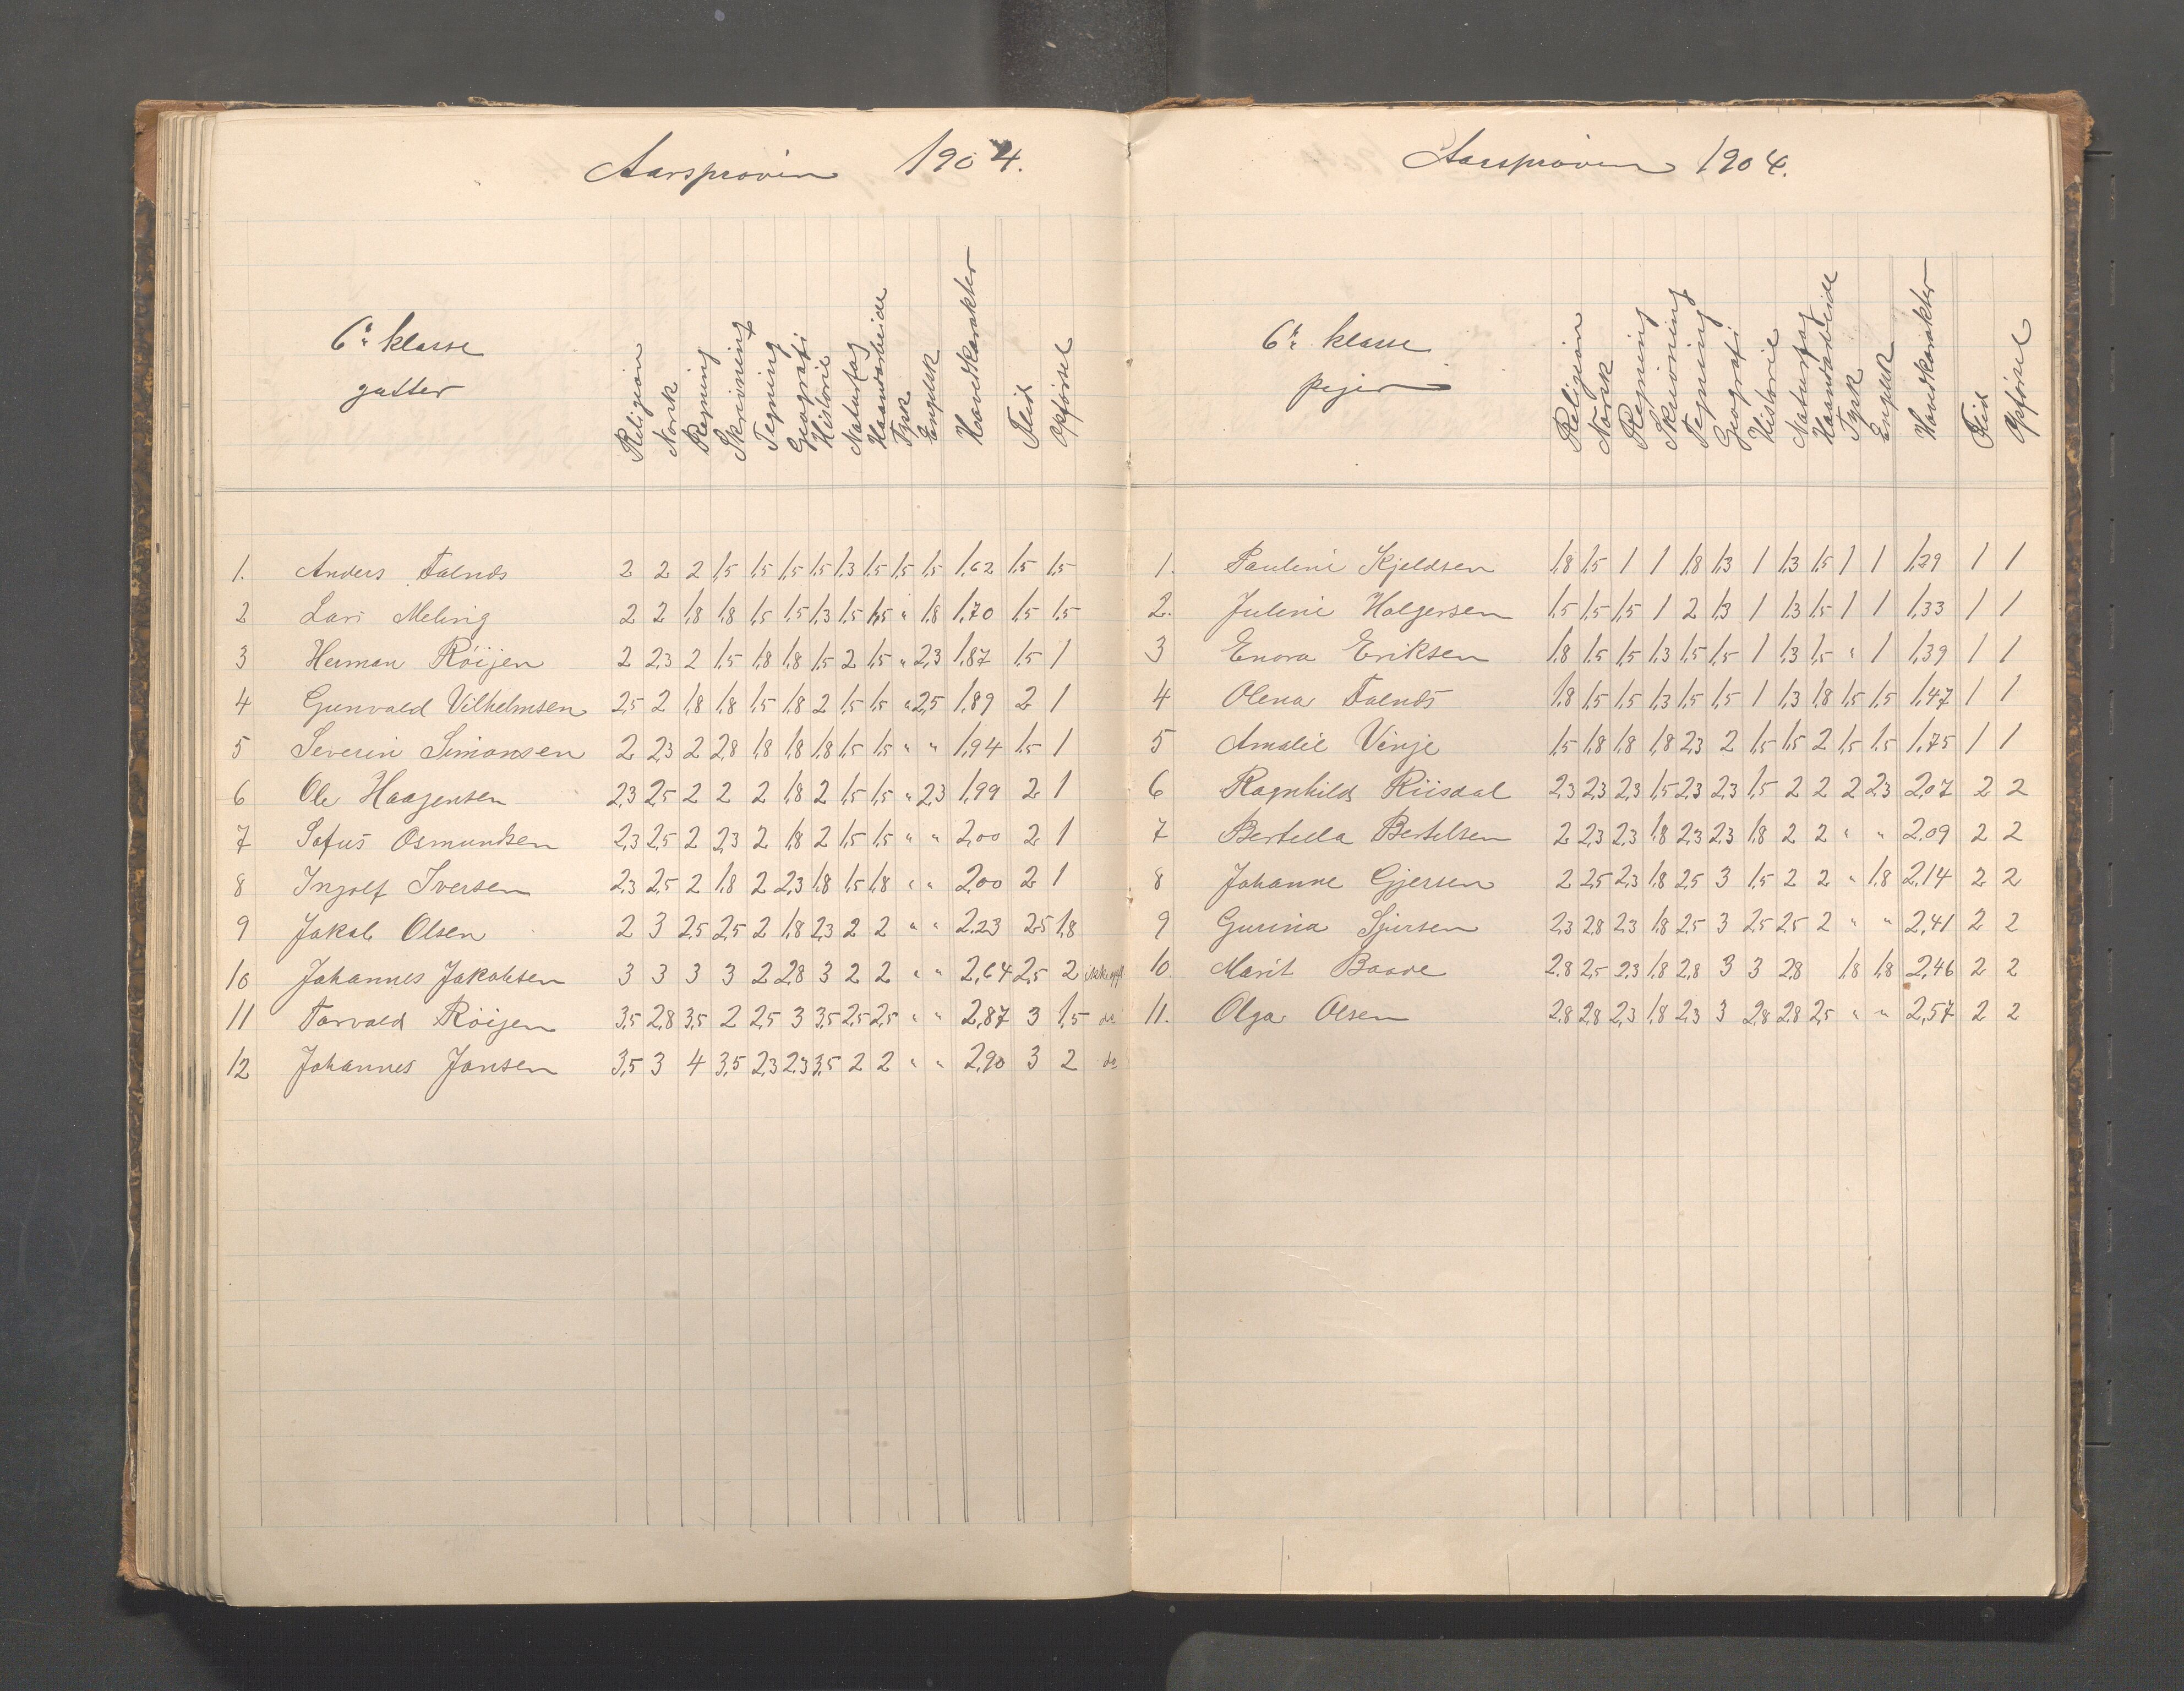 Aarsprøven 1904.
6te klasse
gutter
Religion Norsk Regning Skrivning Tegning Geografi Historie Naturfag Haandarbeide Tysk Engelsk Hovedkarakter Flid Opførsel
1. Anders Falnes 2 2 2 1,5 1,5 1,5 1,5 1,3 1,5 1,5 1,5 1,62 1,5 1,5
2 Lars Meling 2 2 1,8 1,8 1,5 1,5 1,3 1,5 1,5 " 1,8 1,70 1,5 1,5
3 Herman Röijen 2 2,3 2 1,5 1,8 1,8 1,5 2 1,5 " 2,3 1,87 1,5 1
4 Gunvald Vilhelmsen 2,5 2 1,8 1,8 1,5 1,8 2 1,5 1,5 " 2,5 1,89 2 1
5 Severin Simonsen 2 2,3 2 2,8 1,8 1,8 1,8 1,5 1,5 " " 1,94 1,5 1
6 Ole Haagensen 2,3 2,5 2 2 2 1,8 2 1,5 1,5 " 2,3 1,99 2 1
7 Sofus Osmundsen 2,3 2,5 2 2,3 2 1,8 2 1,5 1,5 " " 2,00 2 1
8 Ingolf Iversen 2,3 2,5 2 1,8 2 2,3 1,8 1,5 1,8 " " 2,00 2 1
9 Jakob Olsen 2 3 2,5 2,5 2 1,8 2,3 2 2 " " 2,23 2,5 1,8
10 Johannes Jakobsen 3 3 3 3 2 2,8 3 2 2 " " 2,64 2,5 2 ikke opfl
11 Torvald Röijen 3,5 2,8 3,5 2 2,5 3 3,5 2,5 2,5 " " 2,87 3 1,5 do
12 Johannes Jansen 3,5 3 4 3,5 2,3 2,3 3,5 2 2 " " 2,90 3 2 do
Aarsprøven 1904.
6te klasse
piger
Religion Norsk Regning Skrivning Tegning Geografi Historie Naturfag Haandarbeide Tysk Engelsk Hovedkarakter Flid Opførsel
1. Pauline Kjeldsen 1,8 1,5 1 1 1,8 1,3 1 1,3 1,5 1 1 1,29 1 1
2. Juline Holgersen 1,5 1,5 1,5 1 2 1,3 1 1,3 1,5 1 1 1,33 1 1
3 Enora Eriksen 1,8 1,5 1,5 1,3 1,5 1,5 1 1,3 1,5 " 1 1,39 1 1
4 Olena Falnes 1,8 1,5 1,5 1,3 1,5 1,5 1 1,3 1,8 1,5 1,5 1,47 1 1
5 Amalie Vinje 1,5 1,8 1,8 1,8 2,3 2 1,5 1,5 2 1,5 1,5 1,75 1 1
6 Ragnhild Riisdal 2,3 2,3 2,3 1,5 2,3 2,3 1,5 2 2 2 2,3 2,07 2 2
7 Bertella Bertelsen 2 2,3 2,3 1,8 2,3 2,3 1,8 2 2 " " 2,09 2 2
8 Johanne Gjersen 2 2,5 2,3 1,8 2,5 3 1,5 2 2 " 1,8 2,14 2 2
9 Gurina Sjursen 2,3 2,8 2,3 1,8 2,5 3 2,5 2,5 2 " " 2,41 2 2
10 Marit Baade 2,8 2,5 2,3 1,8 2,8 3 3 2,8 1,8 1,8 2,46 2 2
11. Olga Olsen 2,8 2,8 2,3 1,8 2,3 3 2,8 2,8 2,5 " " 2,57 2 2